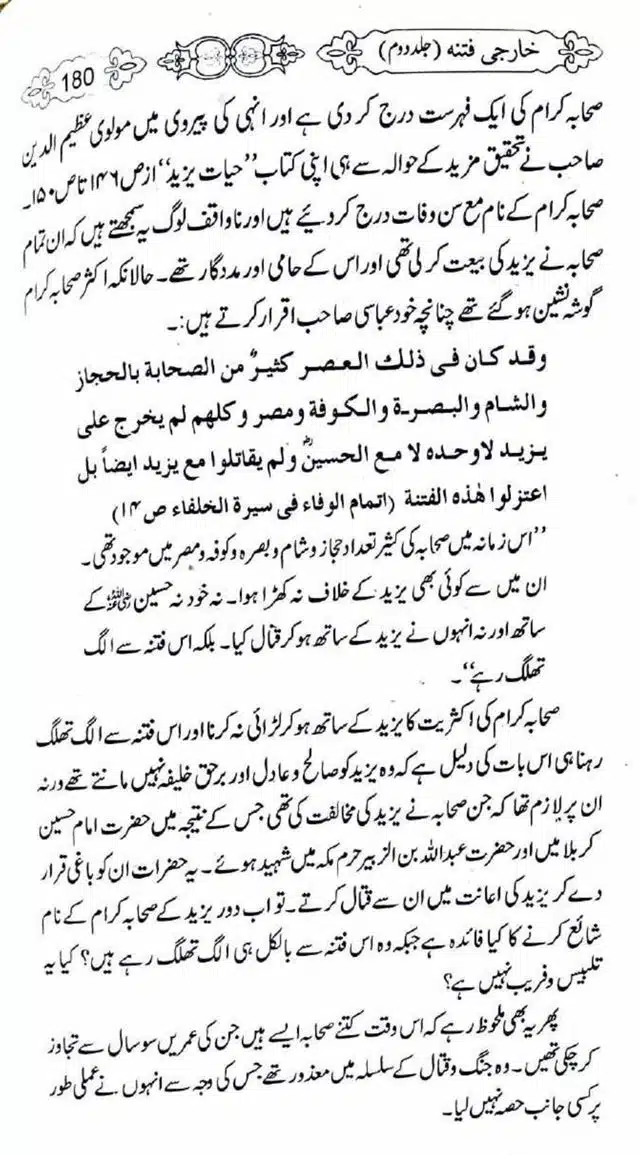 خارجی فتنہ (جلد دوم)
180
صحابہ کرام کی ایک فہرست درج کر دی ہے اور انہی کی پیروی میں مولوی عظیم الدین
صاحب نے تحقیق مزید کے حوالہ سے ہی اپنی کتاب ’’حیات یزید‘‘ از ص ۱۴۶ تا ص ۱۵۰۔
صحابہ کرام کے نام مع سن وفات درج کر دیئے ہیں اور ناواقف لوگ یہ سمجھتے ہیں کہ ان تمام
صحابہ نے یزید کی بیعت کر لی تھی اور اس کے حامی اور مددگار تھے۔ حالانکہ اکثر صحابہ کرام
گوشہ نشین ہو گئے تھے چنانچہ خود عباسی صاحب اقرار کرتے ہیں:۔
وقد كان فى ذلك العصر كثيرٌ من الصحابة بالحجاز
والشام والبصرة والكوفة ومصر وكلهم لم يخرج على
يزيد لاوحده لا مع الحسينؓ ولم يقاتلوا مع يزيد ايضاً بل
اعتزلوا هٰذه الفتنة (اتمام الوفاء فى سيرة الخلفاء ص ۱۴)
’’اس زمانہ میں صحابہ کی کثیر تعداد حجاز و شام و بصرہ و کوفہ و مصر میں موجود تھی۔
ان میں سے کوئی بھی یزید کے خلاف نہ کھڑا ہوا۔ نہ خود نہ حسین رضی اللہ عنہ کے
ساتھ اور نہ انہوں نے یزید کے ساتھ ہو کر قتال کیا۔ بلکہ اس فتنہ سے الگ
تھلگ رہے‘‘۔
صحابہ کرام کی اکثریت کا یزید کے ساتھ ہو کر لڑائی نہ کرنا اور اس فتنہ سے الگ تھلگ
رہنا ہی اس بات کی دلیل ہے کہ وہ یزید کو صالح و عادل اور برحق خلیفہ نہیں مانتے تھے ورنہ
ان پر لازم تھا کہ جن صحابہ نے یزید کی مخالفت کی تھی جس کے نتیجہ میں حضرت امام حسین
کربلا میں اور حضرت عبداللہ بن الزبیر حرم مکہ میں شہید ہوئے۔ یہ حضرات ان کو باغی قرار
دے کر یزید کی اعانت میں ان سے قتال کرتے۔ تو اب دور یزید کے صحابہ کرام کے نام
شائع کرنے کا کیا فائدہ ہے جبکہ وہ اس فتنہ سے بالکل ہی الگ تھلگ رہے ہیں؟ کیا یہ
تلبیس و فریب نہیں ہے؟
پھر یہ بھی ملحوظ رہے کہ اس وقت کتنے صحابہ ایسے ہیں جن کی عمریں سو سال سے تجاوز
کر چکی تھیں۔ وہ جنگ و قتال کے سلسلہ میں معذور تھے جس کی وجہ سے انہوں نے عملی طور
پر کسی جانب حصہ نہیں لیا۔